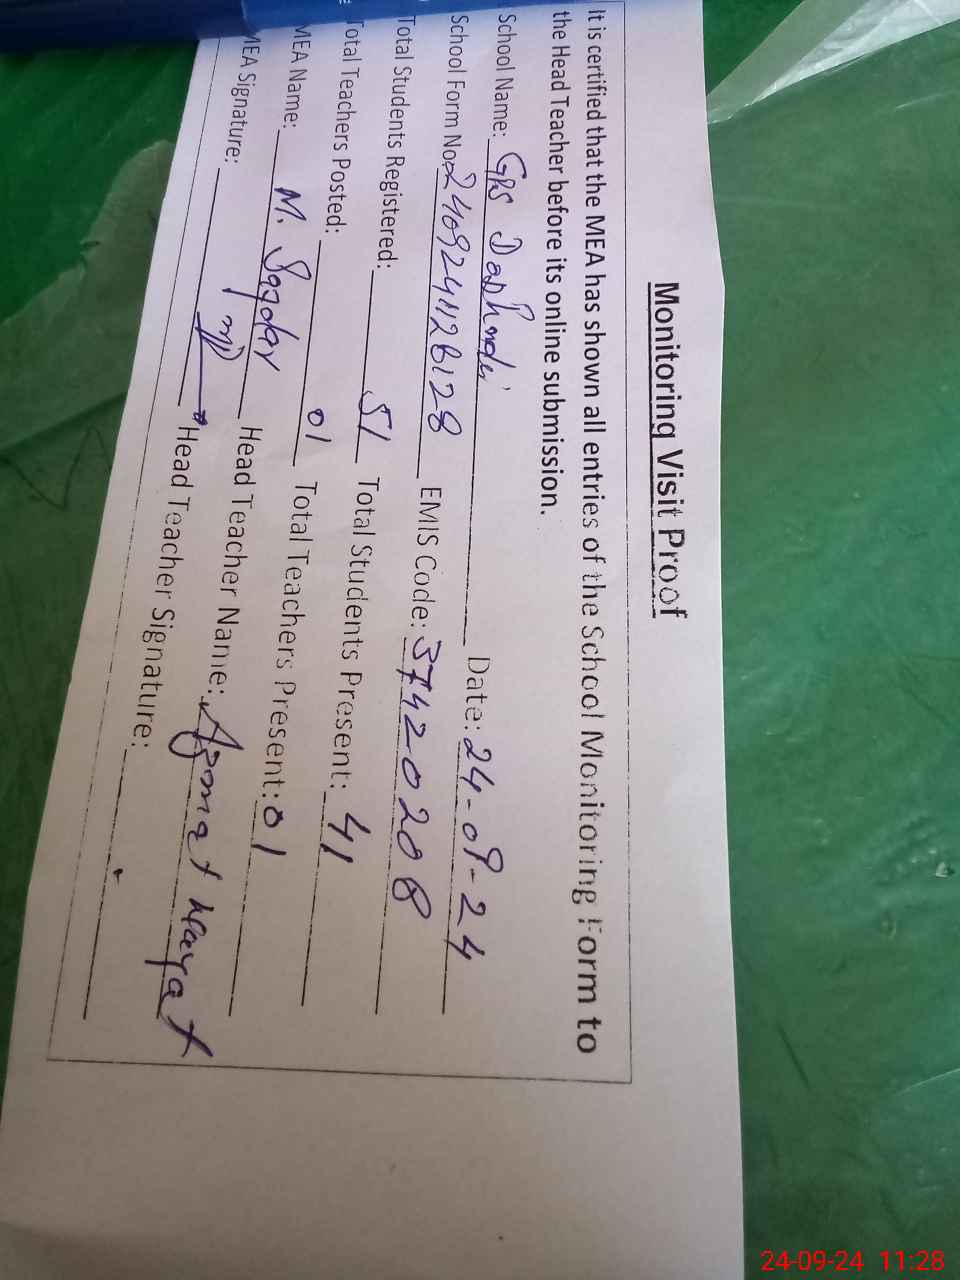 Monitoring Visit Proof
It is certified that the MEA has shown all entries of the School Monitoring Form to
the Head Teacher before its online submission.
School Name: GPS Date: 24-09-24
School Form No: EMIS Code: 37420208
Total Students Registered: 51 Total Students Present: 41
Total Teachers Posted: 01 Total Teachers Present: 01
MEA Name: M. Head Teacher Name: Azmat Hayat
MEA Signature: Head Teacher Signature:
24-09-24 11:28